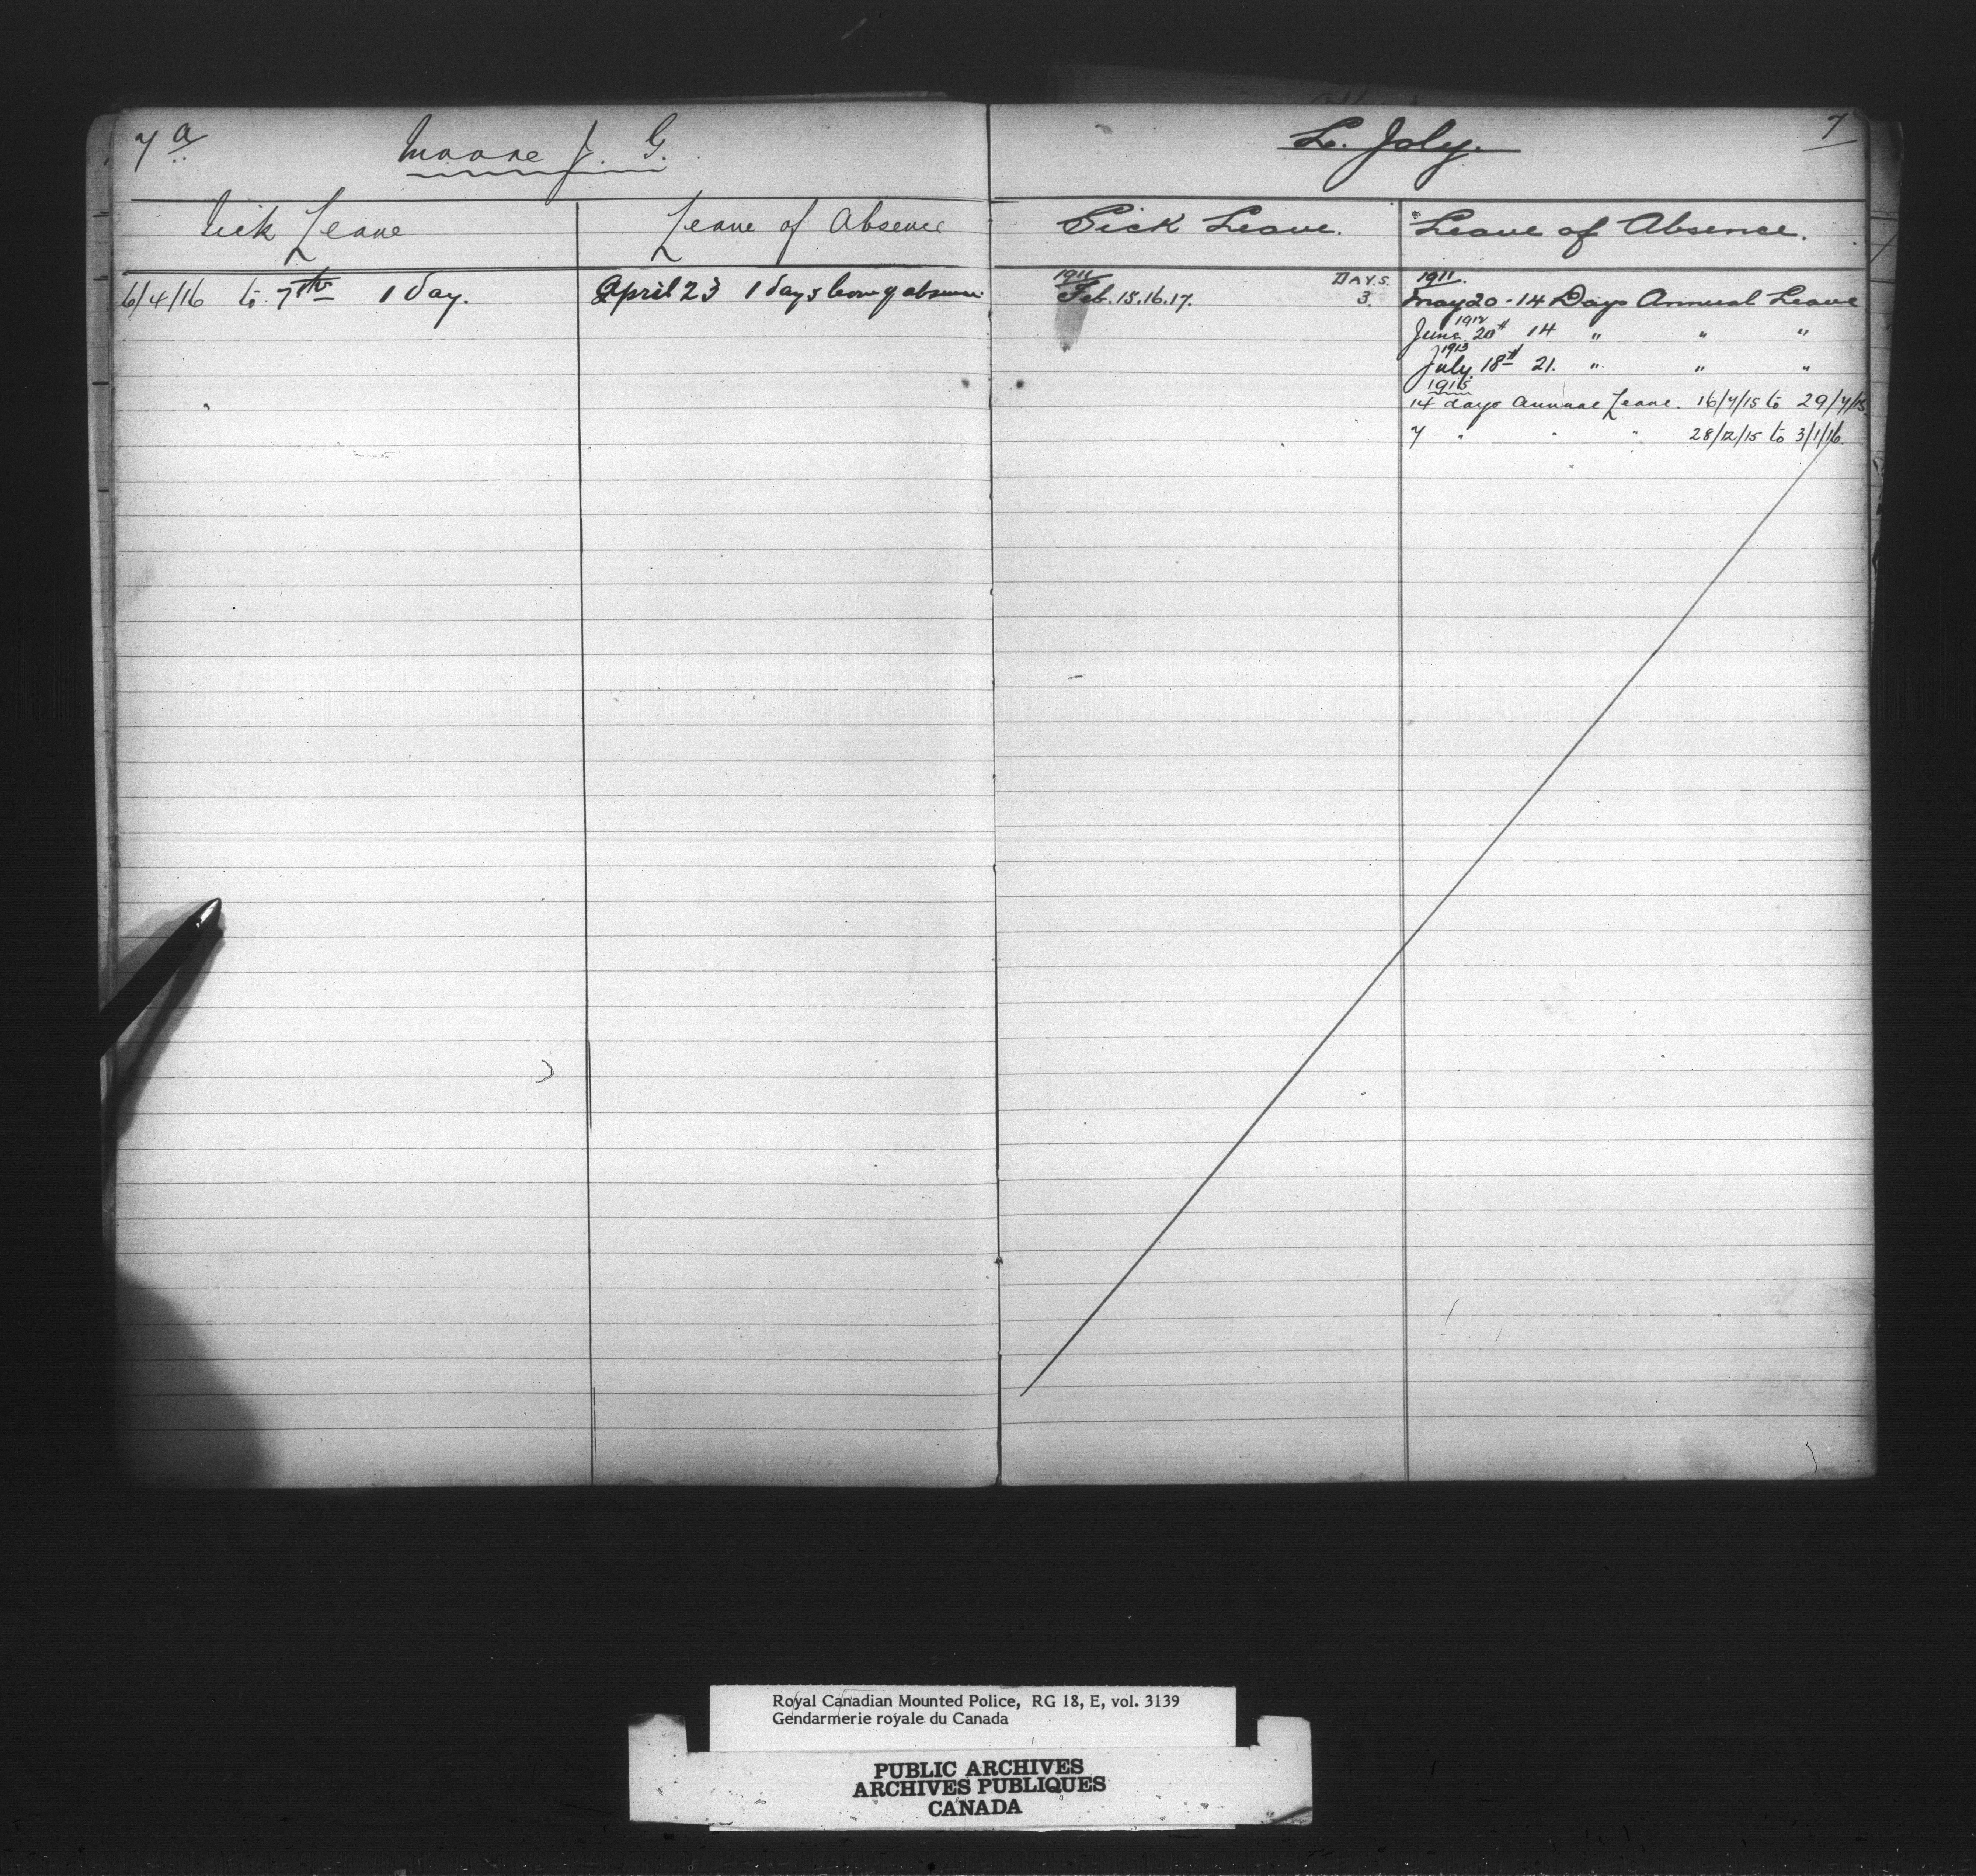 7 a
Moore J. G.
Sick Leave
Leave of Absence
6/4/16 to 7th 1 day.
April 23 1 days leave of absence
L. Joly.
7
Sick Leave.
Leave of Absence.
1911 DAYS.
Feb. 15.16.17. 3.
1911.
May 20 - 14 Days Annual Leave
1912
June 20th 14 " " "
1913
July 18th 21. " " "
1915
14 days Annual Leave. 16/7/15 to 29/7/15
7 " " " 28/12/15 to 3/1/16.
Royal Canadian Mounted Police, RG 18, E, vol. 3139
Gendarmerie royale du Canada
PUBLIC ARCHIVES
ARCHIVES PUBLIQUES
CANADA